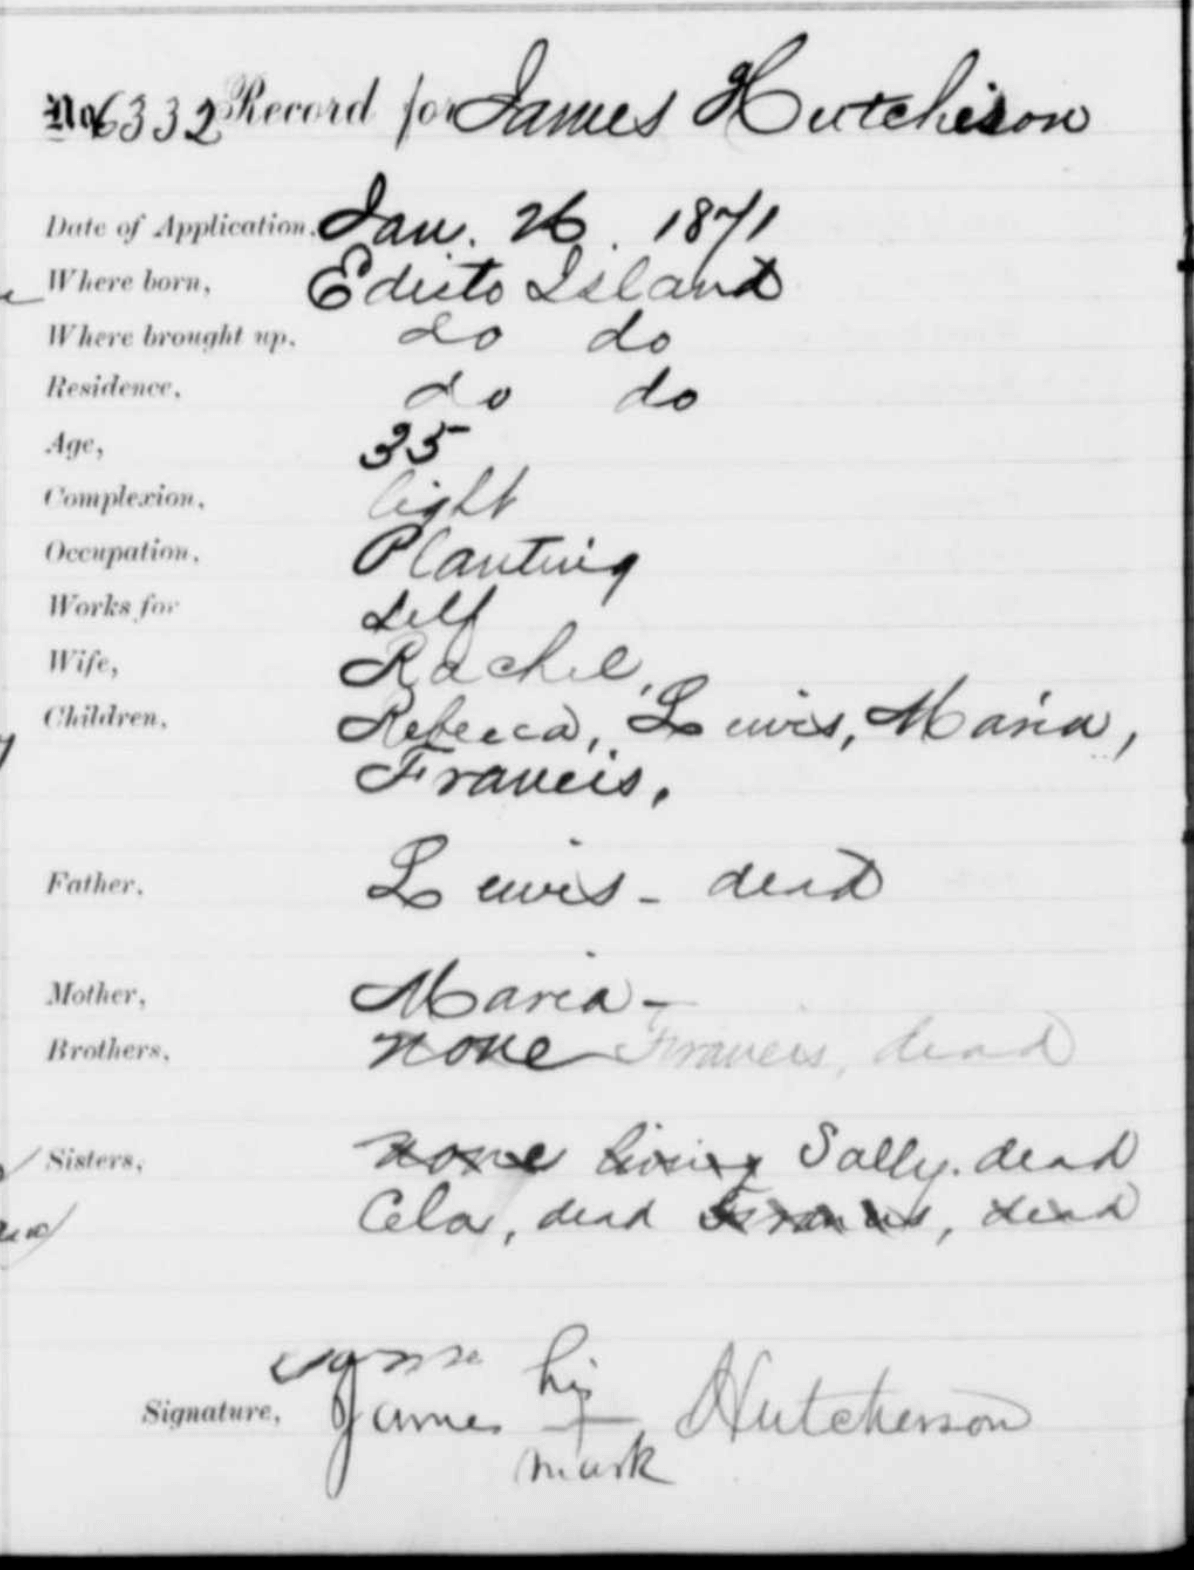 No 6332 Record for James Hutchison
Date of Application, Jan. 26. 1871
Where born, Edisto Island
Where brought up, do do
Residence, do do
Age, 35
Complexion, light
Occupation, Planting
Works for self
Wife, Rachel,
Children, Rebecca, Lewis, Maria,
Francis.
Father, Lewis - dead
Mother, Maria -
Brothers, none Francis, dead
Sisters, none living Sally. dead
Cela, dead Francis, dead
his
Signature, James + Hutcherson
mark